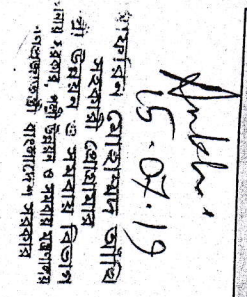 15.07.19
মোহাম্মদ আঁখি
সরকারী প্রোগ্রামার
পল্লী উন্নয়ন ও সমবায় বিভাগ
স্থানীয় সরকার, পল্লী উন্নয়ন ও সমবায় মন্ত্রণালয়
গণপ্রজাতন্ত্রী বাংলাদেশ সরকার